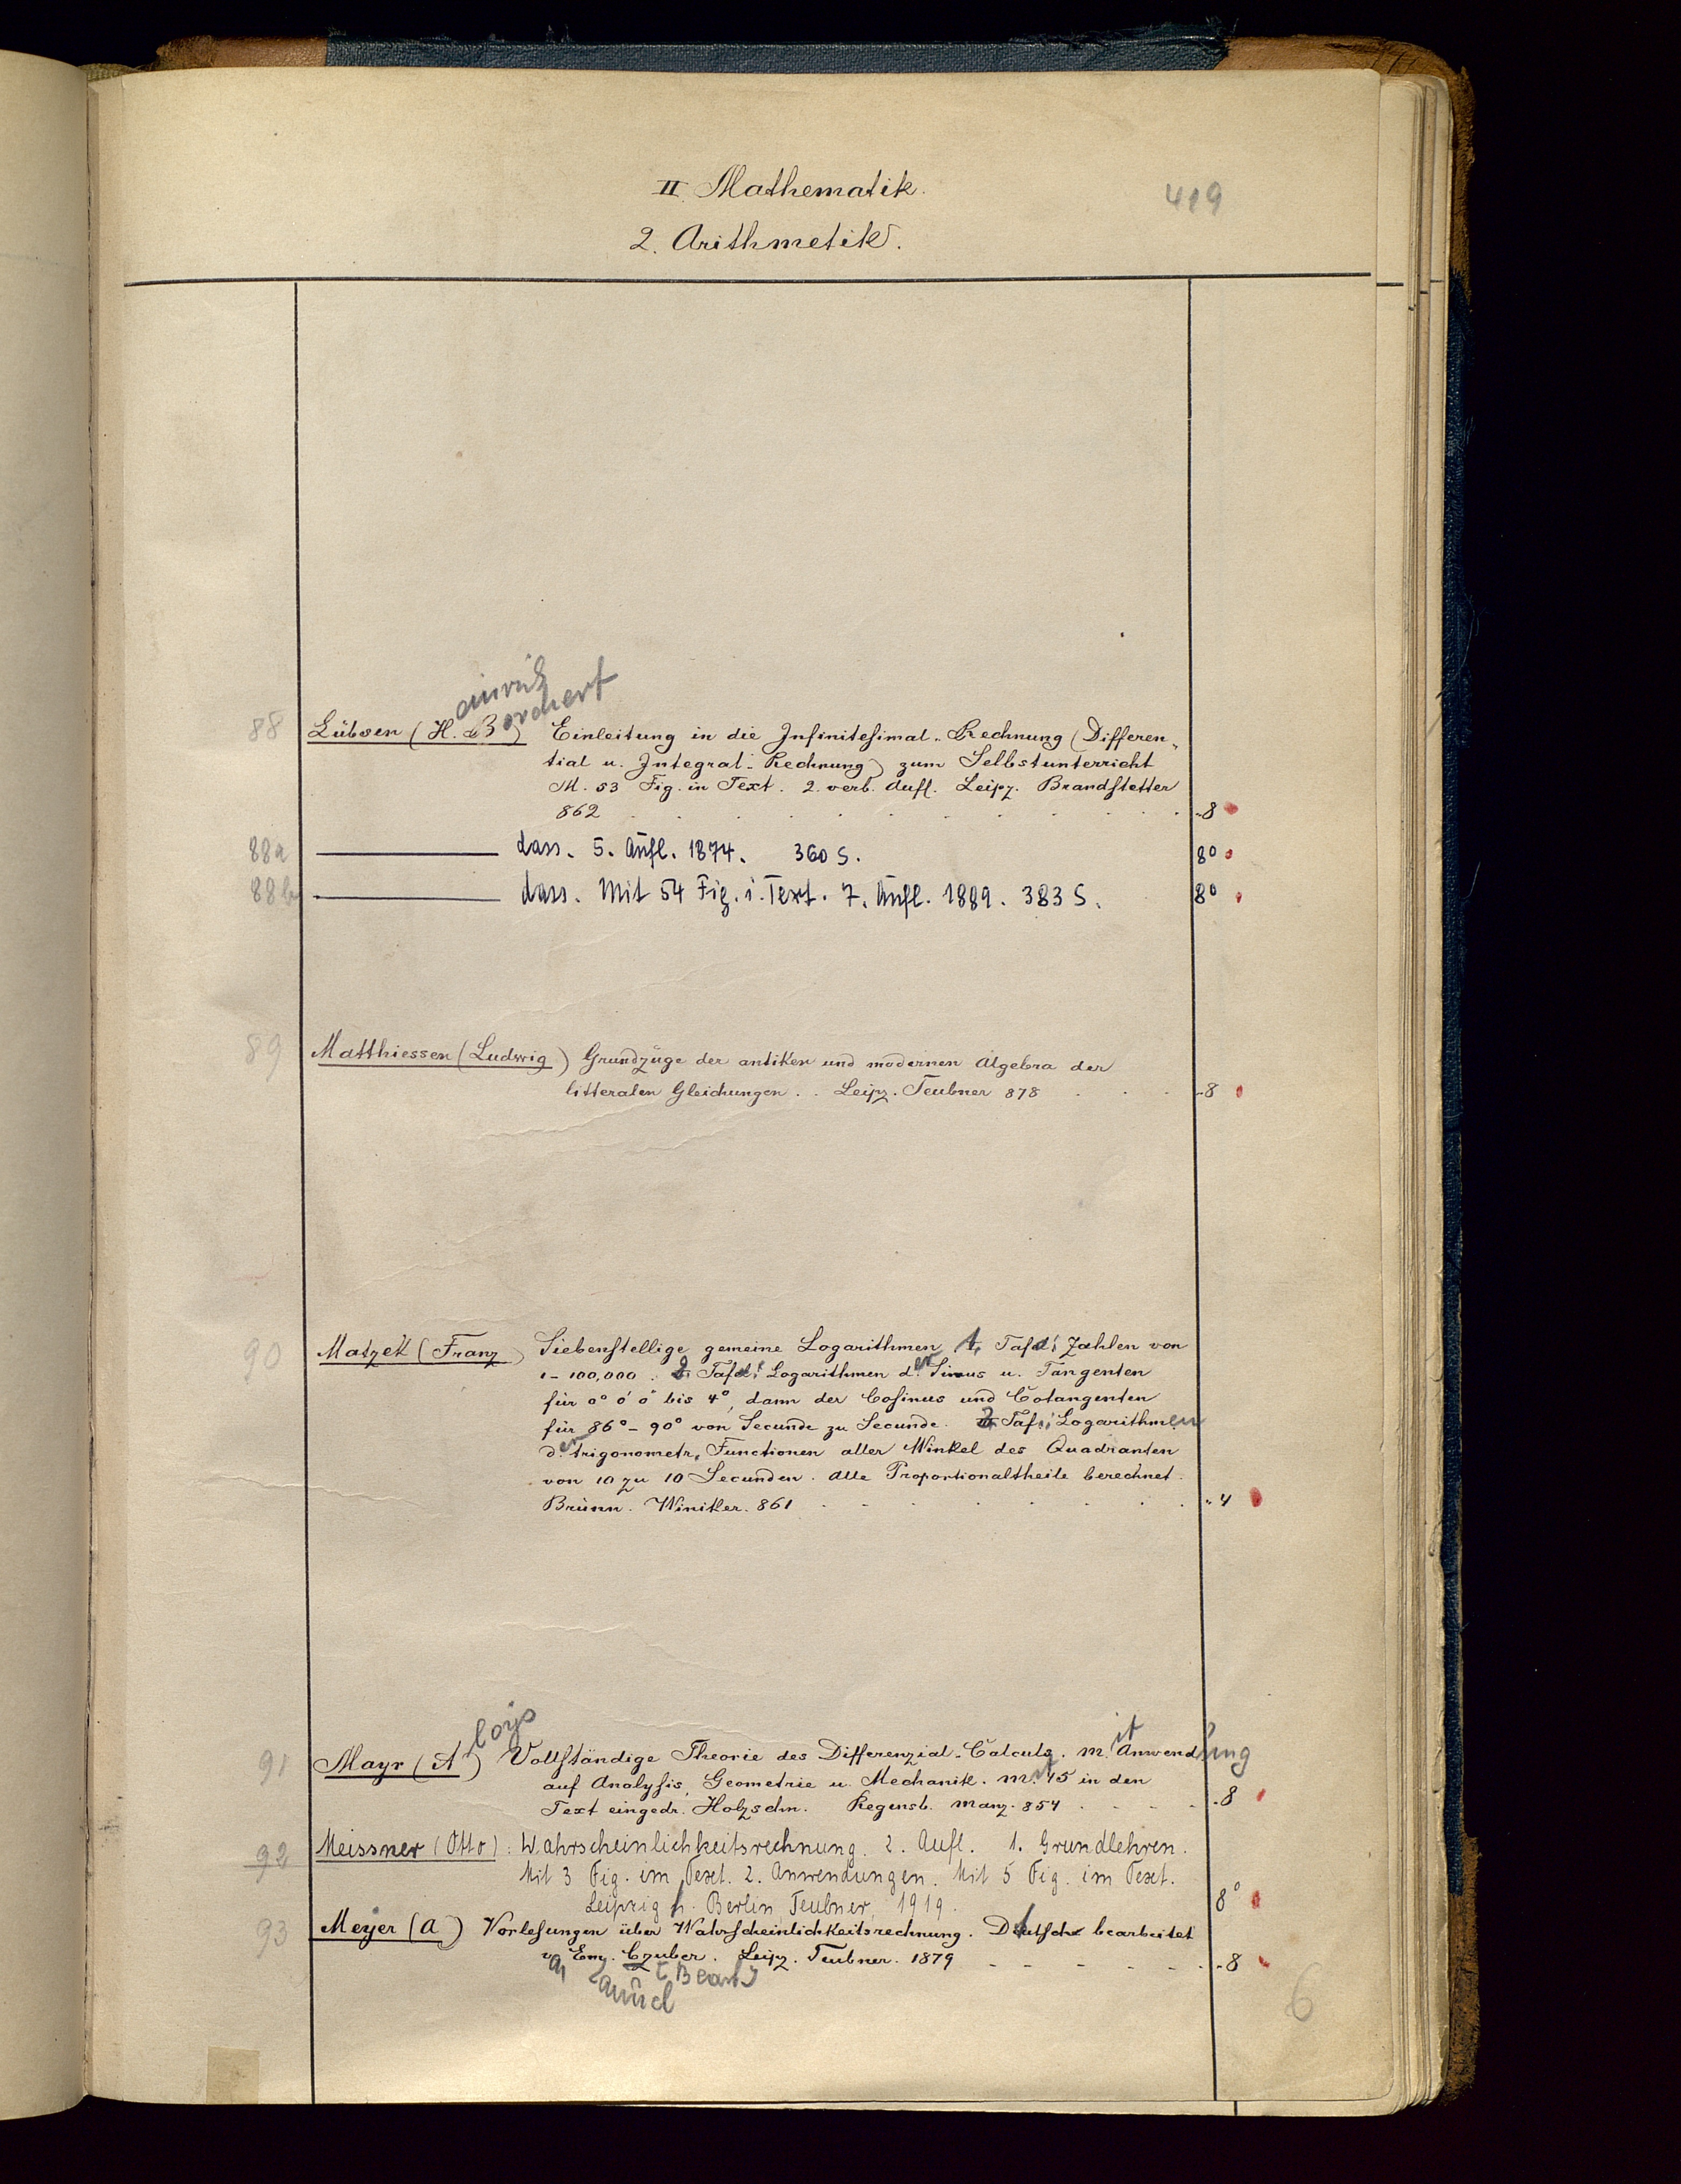 II. Mathematik.
419
2. Arithmetik.
einrich
orchert
88 Lübsen (H. B) Einleitung in die Infinitesimal-Rechnung (Differen-
tial u. Integral-Rechnung) zum Selbstunterricht
M. 53 Fig. in Text. 2. verb. Aufl. Leipz. Brandstetter
862 . . . . . . . . . . . 8
88a ——— dass. 5. Aufl. 1874. 360 S. 8°
88b ——— dass. Mit 54 Fig. i. Text. 7. Aufl. 1889. 383 S. 8°
89 Matthiessen (Ludwig) Grundzüge der antiken und modernen Algebra der
litteralen Gleichungen . . Leipz. Teubner 878 . . . 8
90 Matzek (Franz) Siebenstellige gemeine Logarithmen 1. Tafel: Zahlen von
1-100,000. 2. Tafel: Logarithmen der Sinus u. Tangenten
für 0° 0' 0" bis 4°, dann der Cosinus und Cotangenten
für 86°-90° von Secunde zu Secunde. 3. Taf: Logarithmen
der trigonometr. Functionen aller Winkel des Quadranten
von 10 zu 10 Secunden. Alle Proportionaltheile berechnet.
Brünn. Winiker. 861 . . . . . . . 4
loys
it
91 Mayr (A) Vollständige Theorie des Differenzial-Calculs. m. Anwendung
auf Analysis, Geometrie u. Mechanik. mit 45 in den
Text eingedr. Holzschn. Regensb. Manz. 854 . . . . 8
92 Meissner (Otto): Wahrscheinlichkeitsrechnung. 2. Aufl. 1. Grundlehren.
Mit 3 Fig. im Text. 2. Anwendungen. Mit 5 Fig. im Text.
Leipzig u. Berlin, Teubner, 1919. 8°
93 Meyer (A) Vorlesungen über Wahrscheinlichkeitsrechnung. Deutsch bearbeitet
v. Em. Czuber. Leipz. Teubner. 1879 - - - - - 8
[Bearb]
6